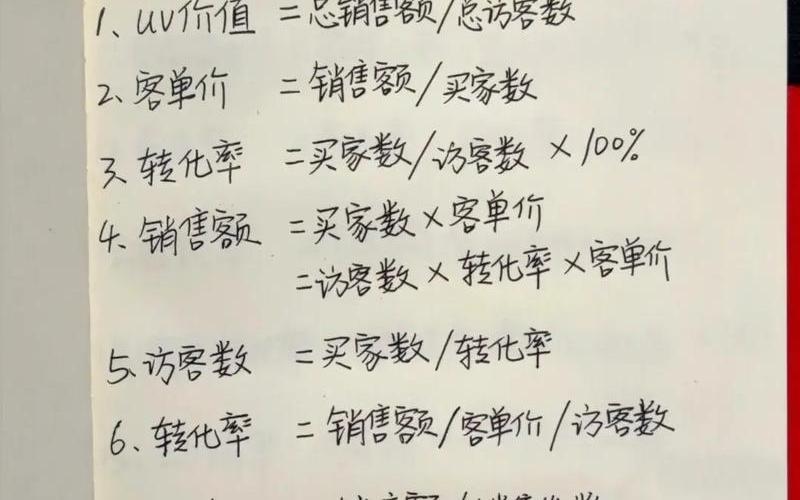 1、UV价值 =总销售额/总访客数
2、客单价 =销售额/买家数
3、转化率 =买家数/访客数 ×100%
4、销售额 =买家数×客单价
=访客数×转化率×客单价
5、访客数 =买家数/转化率
6、转化率 =销售额/客单价/访客数